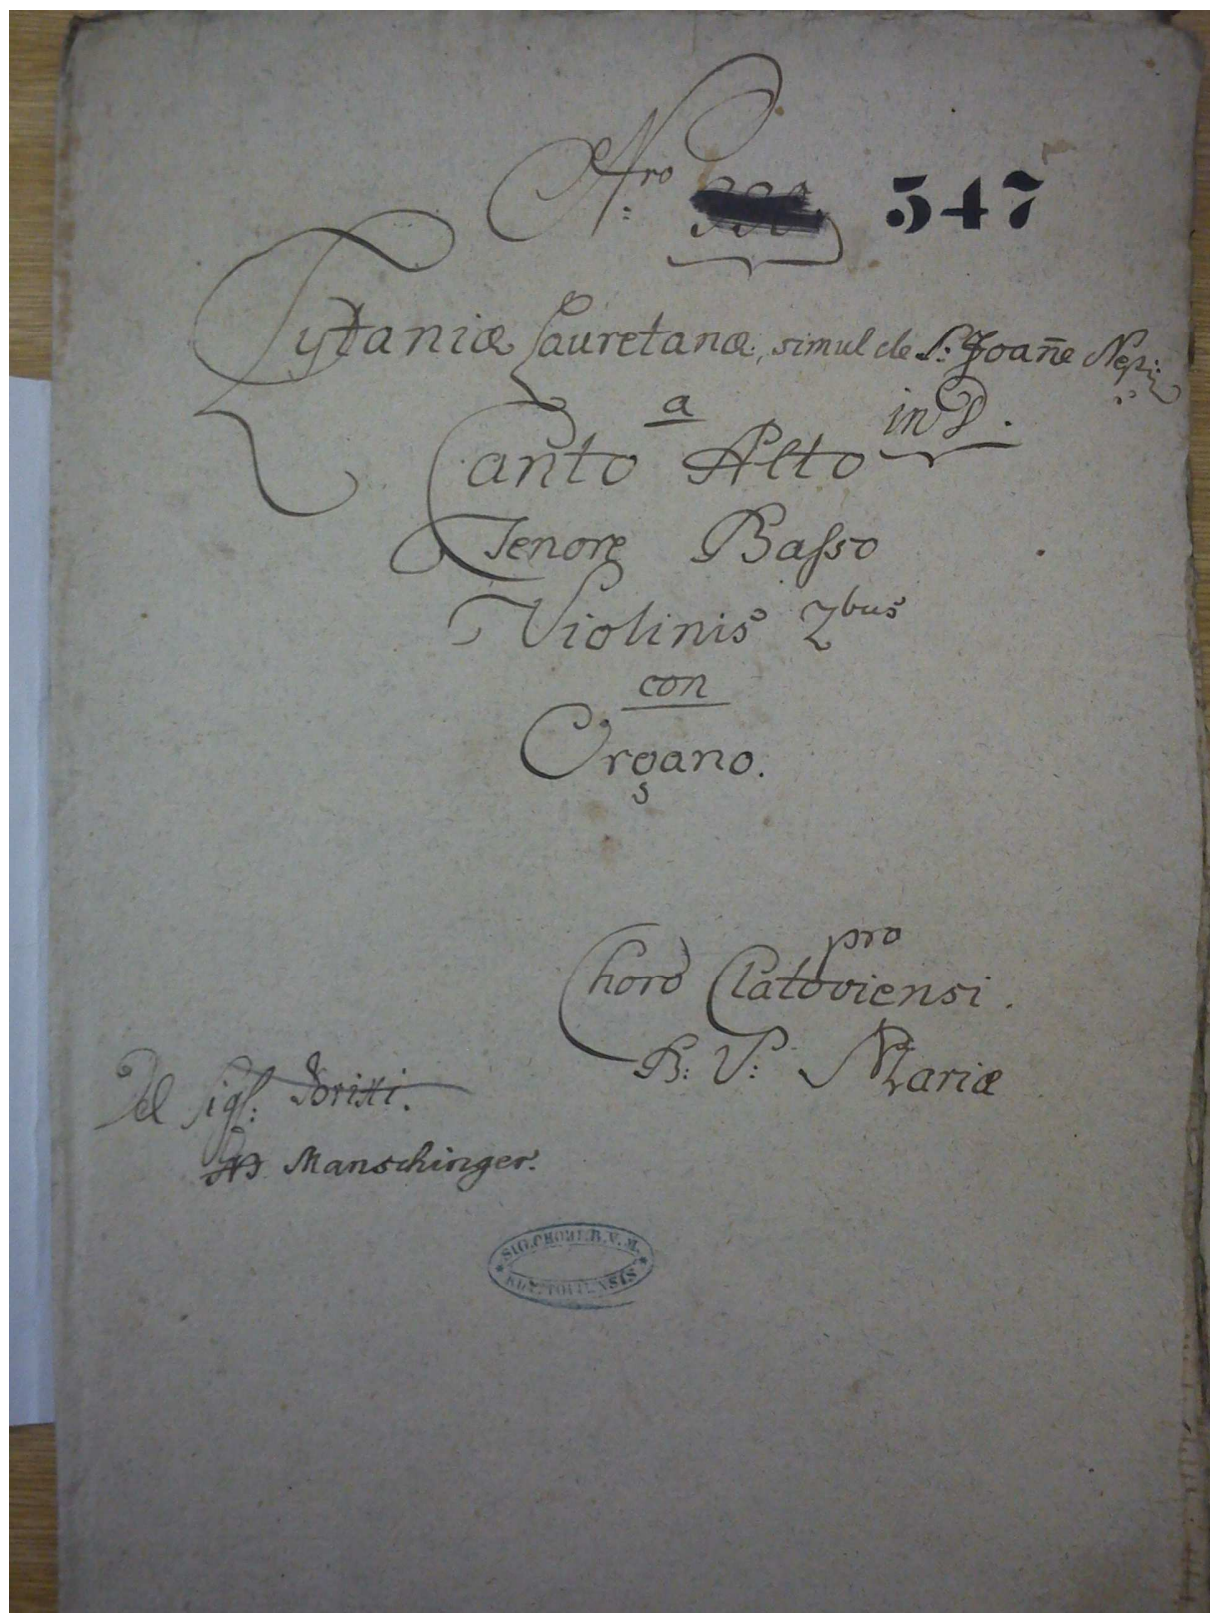 Nro: 547
Lytaniæ Lauretanæ, simul de S: Joan̄e Nep:
a
in D.
Canto Alto
Tenore Basso
Violinis 2bus
con
Organo.
pro
Choro Clatoviensi.
B: V: Mariæ
Del Sigl:
Manschinger.
SIG. CHORI B. V. M.